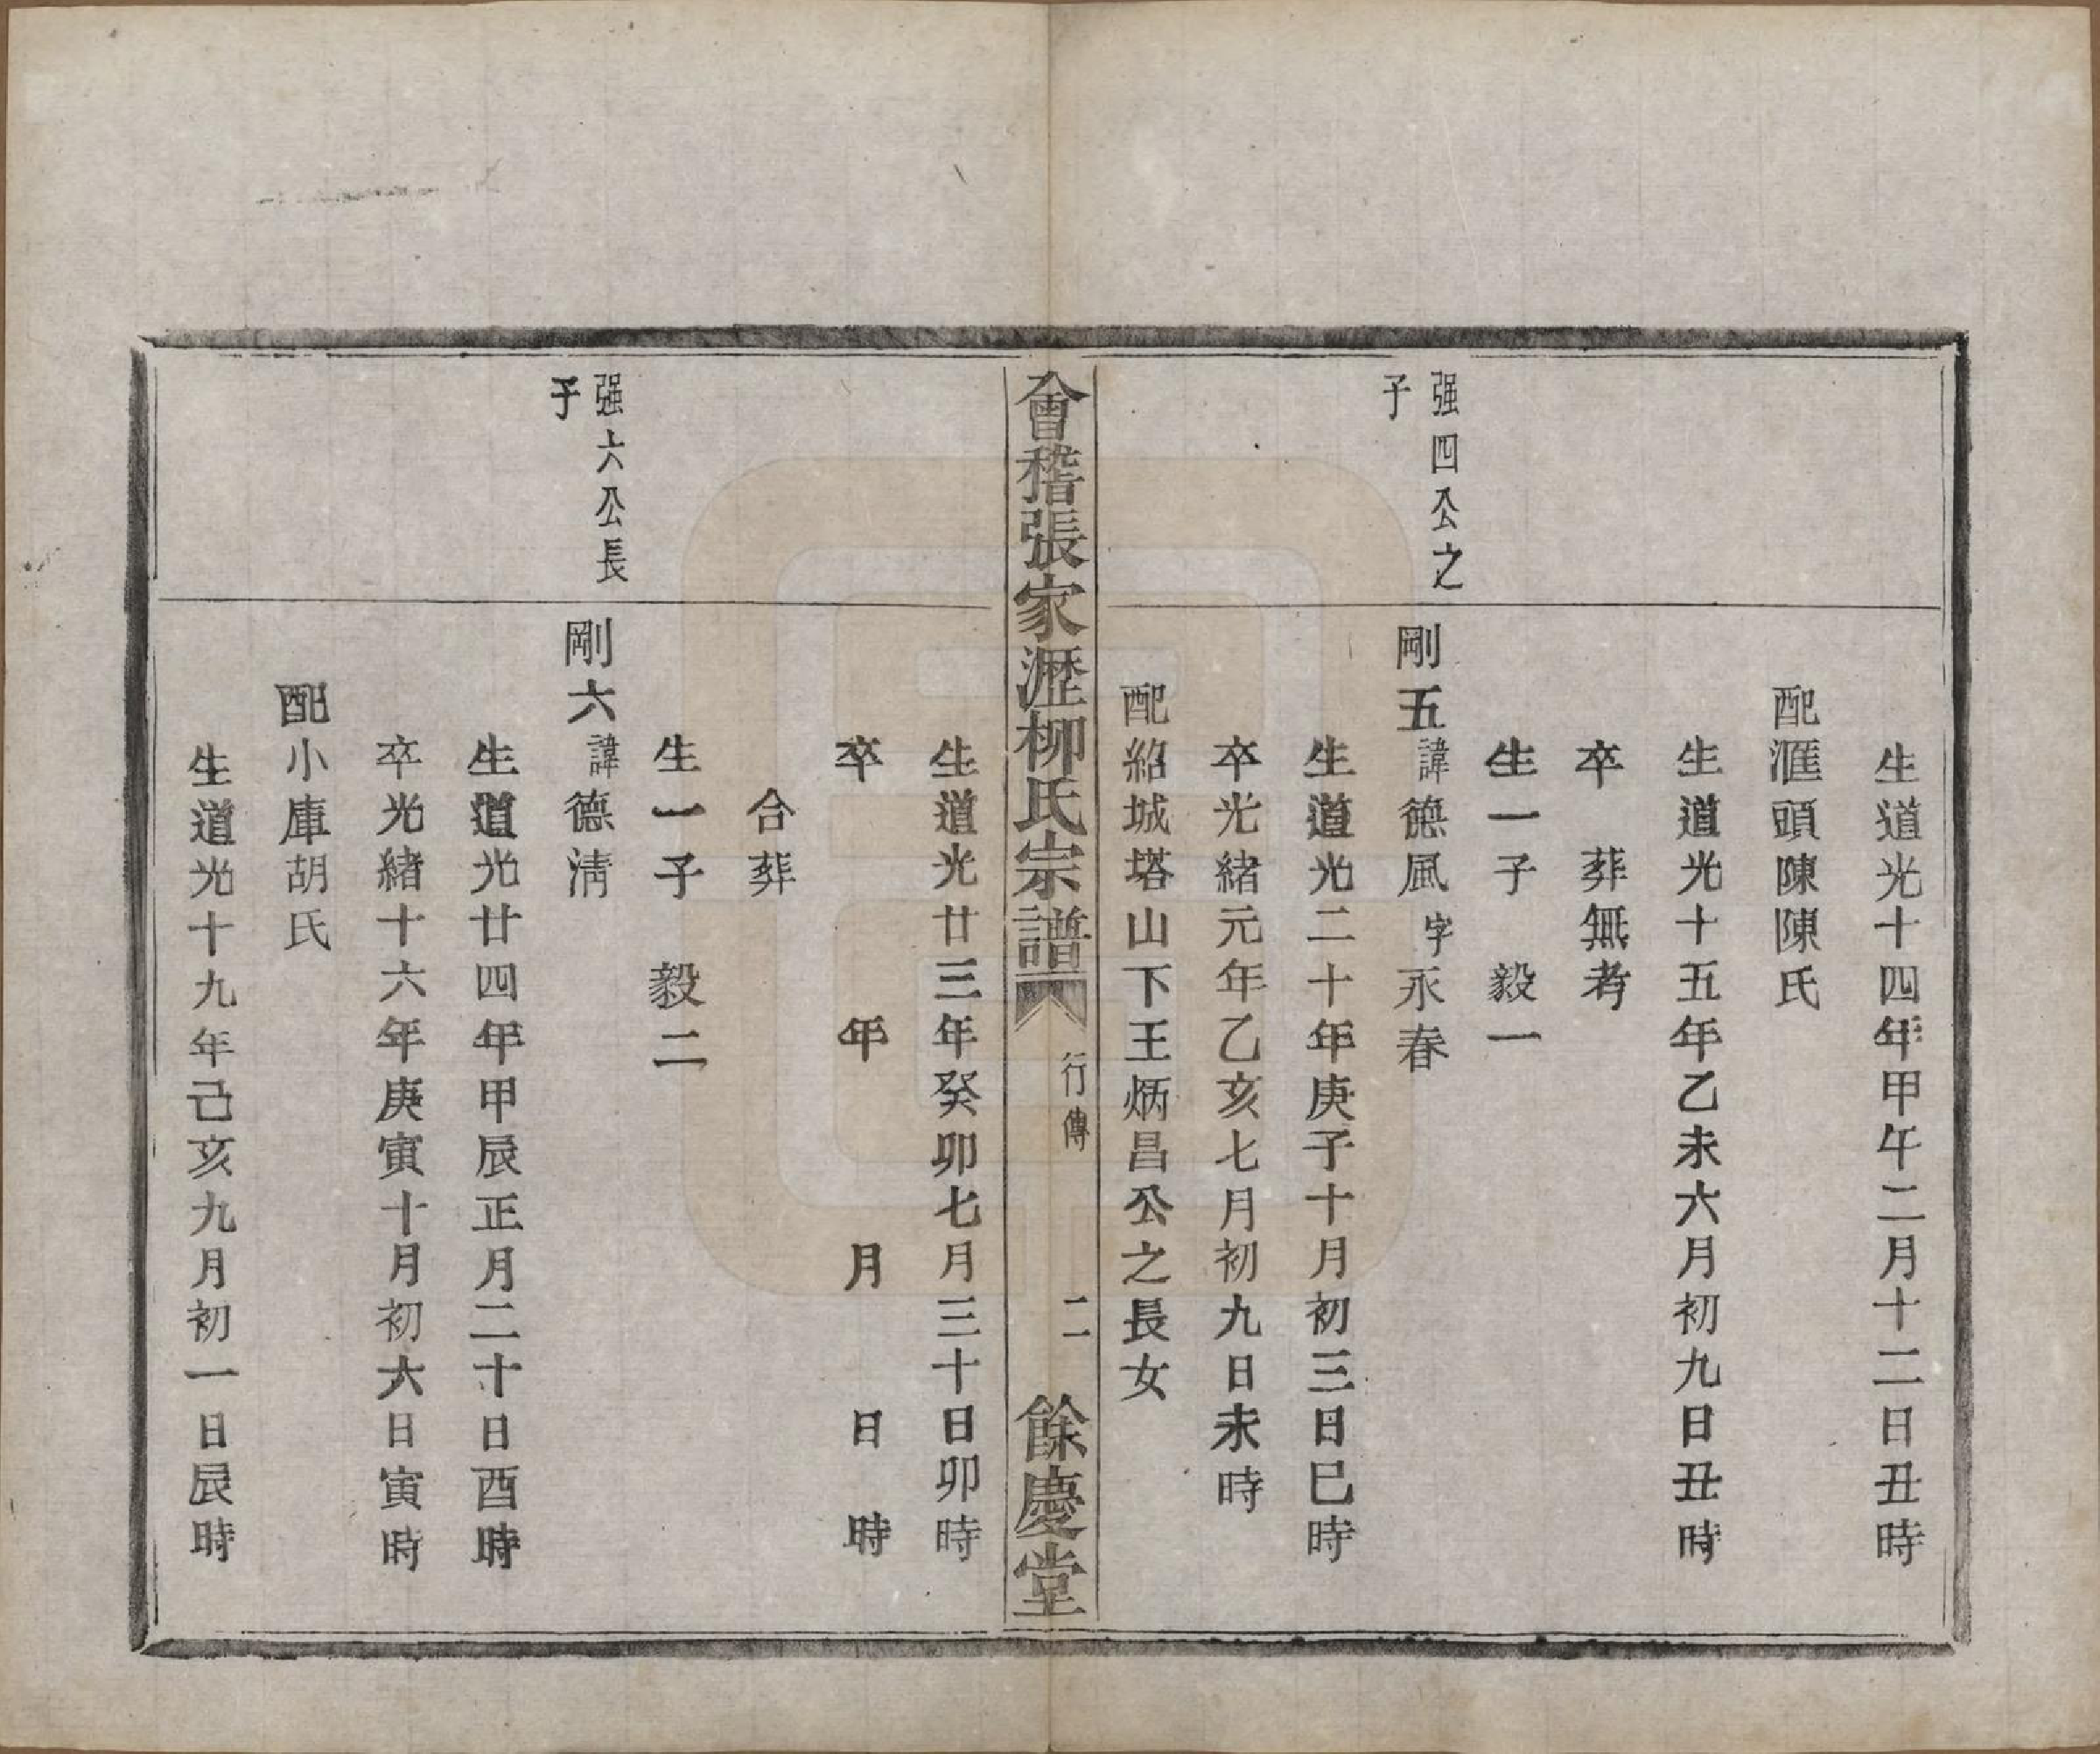 生道光十四年甲午二月十二日丑時
配滙頭陳陳氏
生道光十五年乙未六月初九日丑時
卒　葬無考
生一子　毅一
强四公之子
剛五諱德風字永春
生道光二十年庚子十月初三日巳時
卒光緒元年乙亥七月初九日未時
配紹城塔山下王炳昌公之長女
會稽張家瀝柳氏宗譜　行傳　二　餘慶堂
生道光廿三年癸卯七月三十日卯時
卒　年　月　日　時
合葬
生一子　毅二
强六公長子
剛六諱德淸
生道光廿四年甲辰正月二十日酉時
卒光緒十六年庚寅十月初六日寅時
配小庫胡氏
生道光十九年己亥九月初一日辰時